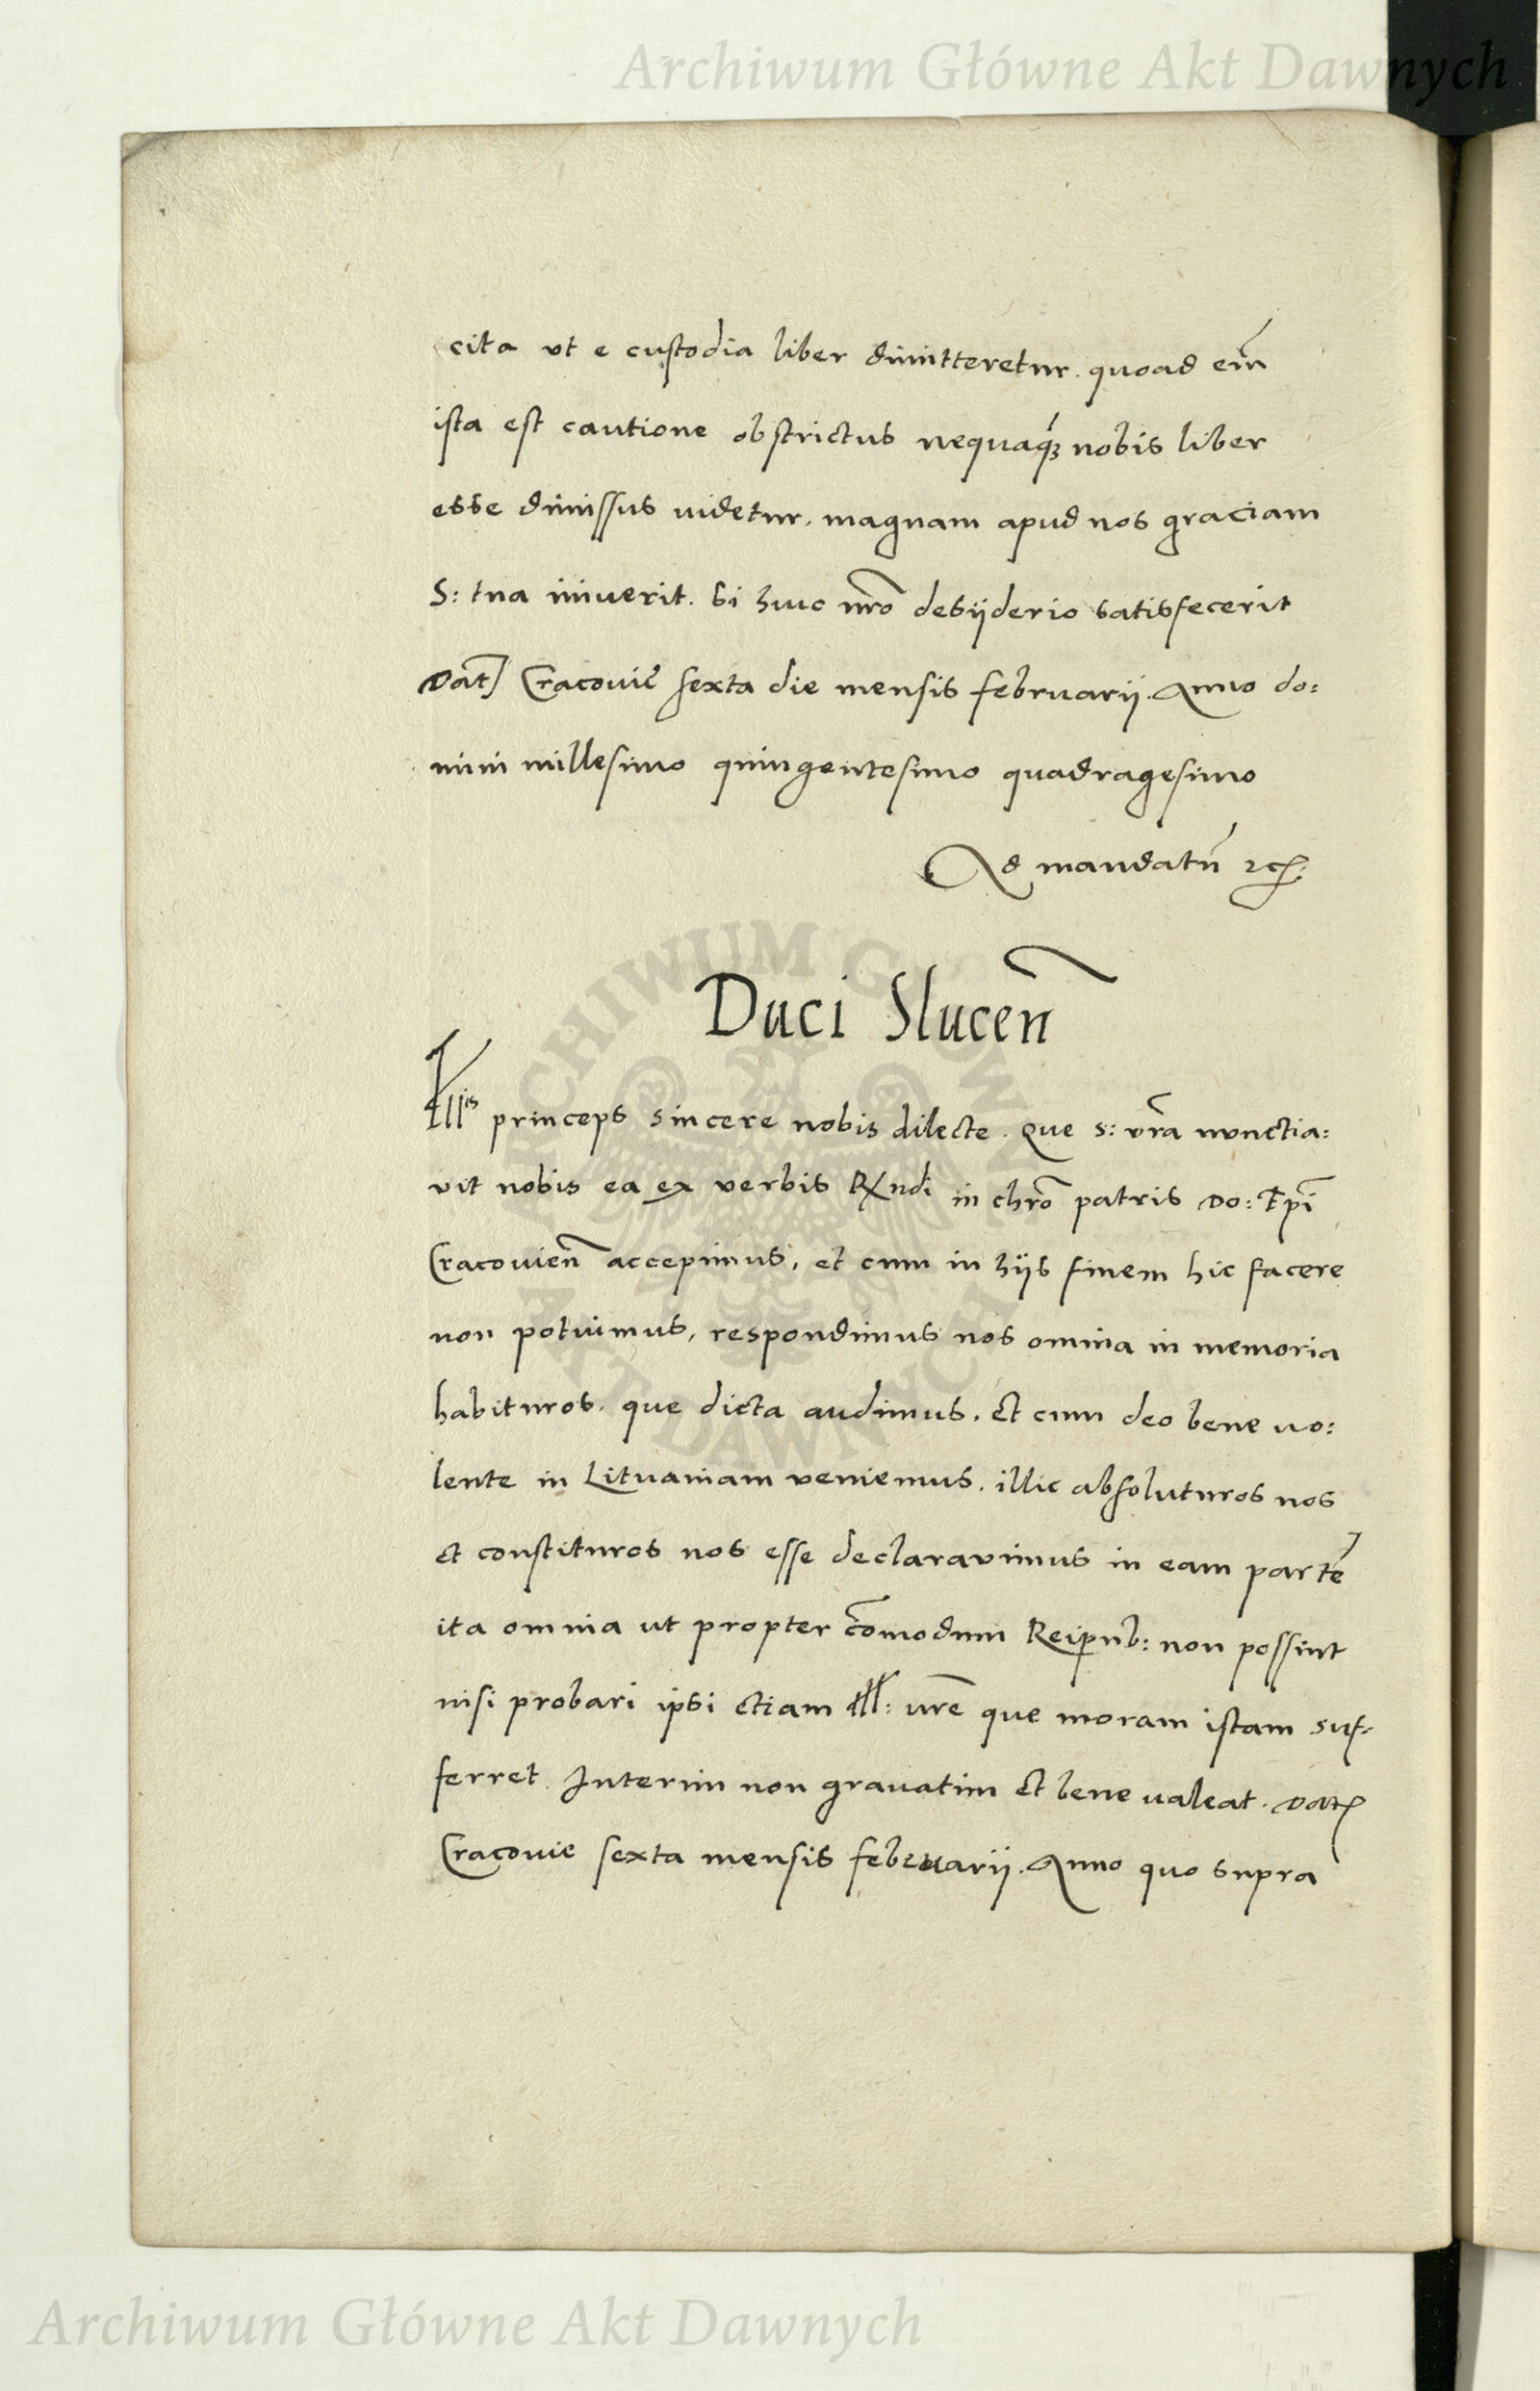 Archiwum Główne Akt Dawnych
cita vt e custodia liber dimitteretur. quoad em̃
ista est cautione obstrictus nequaq̃ nobis liber
esse dimissus uidetur, magnam apud nos graciam
S: tua iniuerit. si huic nr̃o desyderio satisfecerit
Dat̃ Cracovię sexta die mensis februarij. Anno do:
mini millesimo quingentesimo quadragesimo
Ad mandatũ etc:
Duci Slucen̄
Illis princeps sincere nobis dilecte. Que S: vr̃a nunctia:
vit nobis ea ex verbis Rndi in chr̃o patris Do: Epĩ
Cracouien̄ accepimus, et cum in hijs finem hic facere
non potuimus, respondimus nos omnia in memoria
habituros, que dicta audimus. Et cum deo bene uo:
lente in Lituaniam veniemus, illic absoluturos nos
et constituros nos esse declaravimus in eam partẽ
ita omnia ut propter cõmodum Reipub: non possint
nisi probari ipsi etiam Ill: vrẽ que moram istam suf-
ferret. Interim non gravatim et bene valeat. Dat̃
Cracovie sexta mensis februarij. Anno quo supra
ARCHIWUM GŁÓWNE
AKT DAWNYCH
Archiwum Główne Akt Dawnych